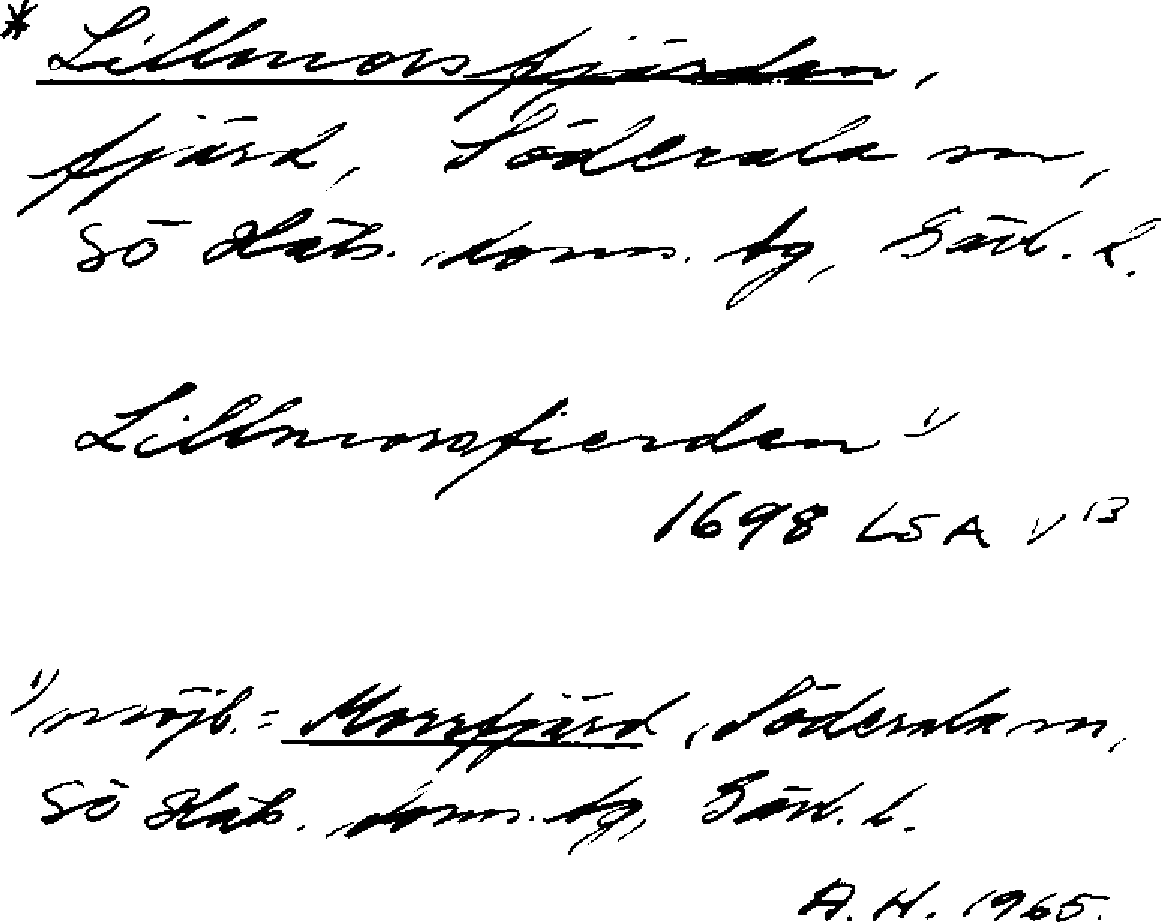 * Lillmorsfjärden,
fjärd, Söderala sn,
Sö Häls. doms. tg, Gävl. l.
Lillmorsfierden 1)
1698 LSA V 13
1) möjl. = Morrfjärd, Söderala sn,
Sö Häls. doms. tg, Gävl. l.
A. H. 1965.